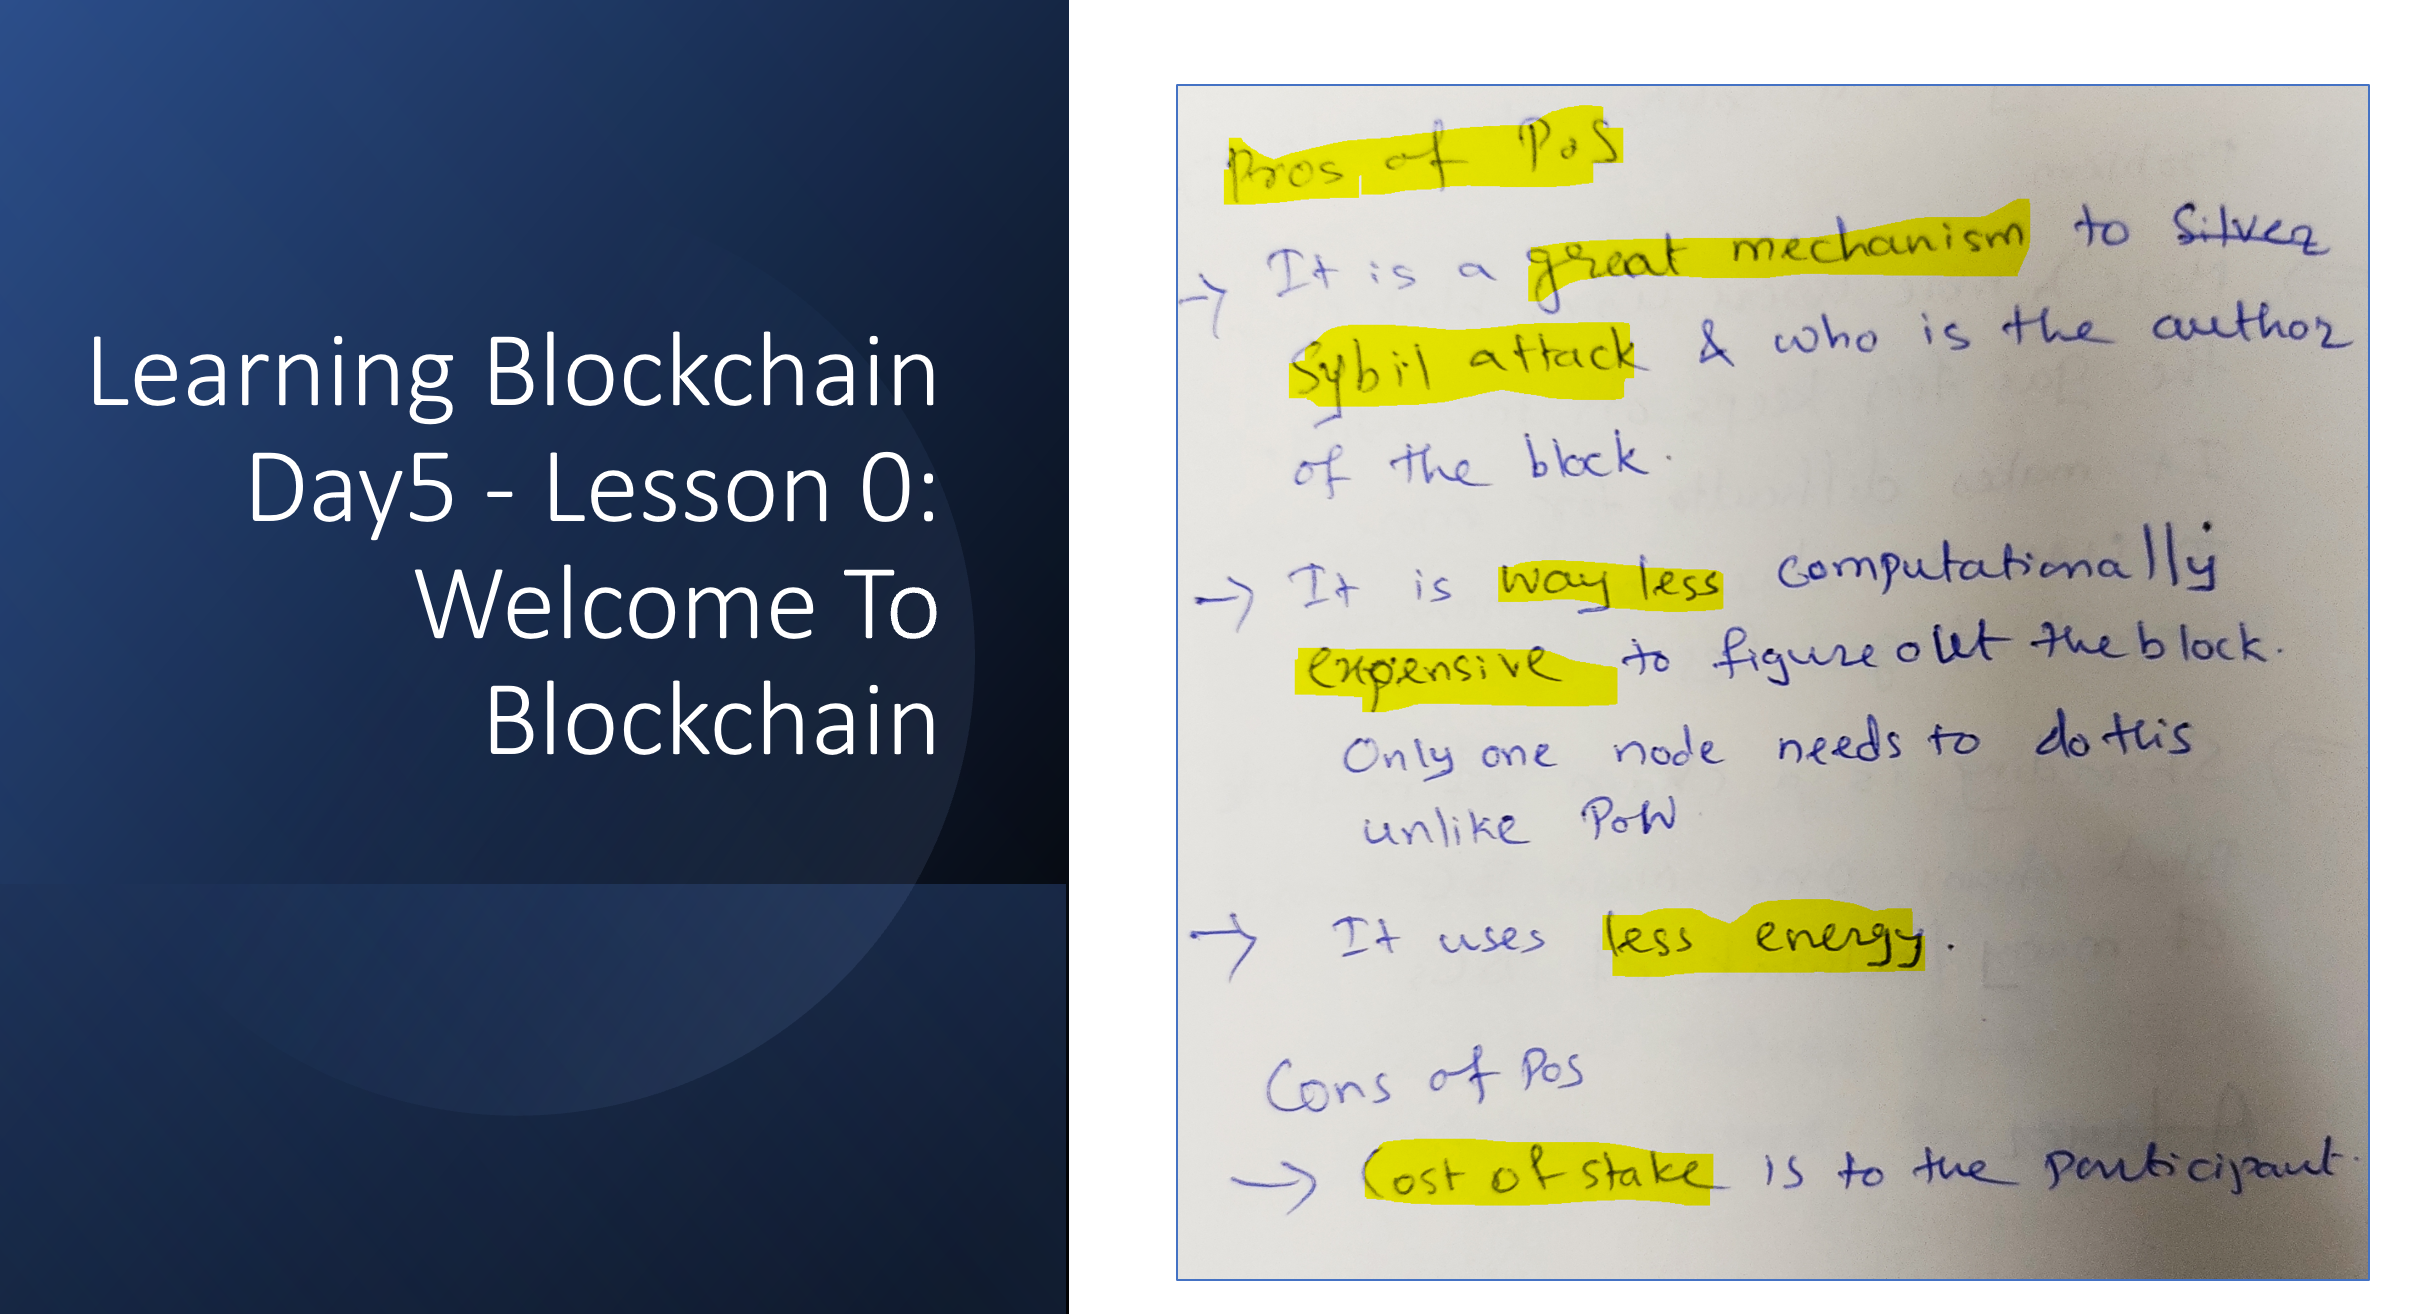 Learning Blockchain
Day5 - Lesson 0:
Welcome To
Blockchain
Pros of PoS
→ It is a great mechanism to Silver
Sybil attack & who is the author
of the block.
→ It is way less computationally
expensive to figure out the block.
Only one node needs to do this
unlike PoW
→ It uses less energy.
Cons of PoS
→ Cost of stake is to the participant.